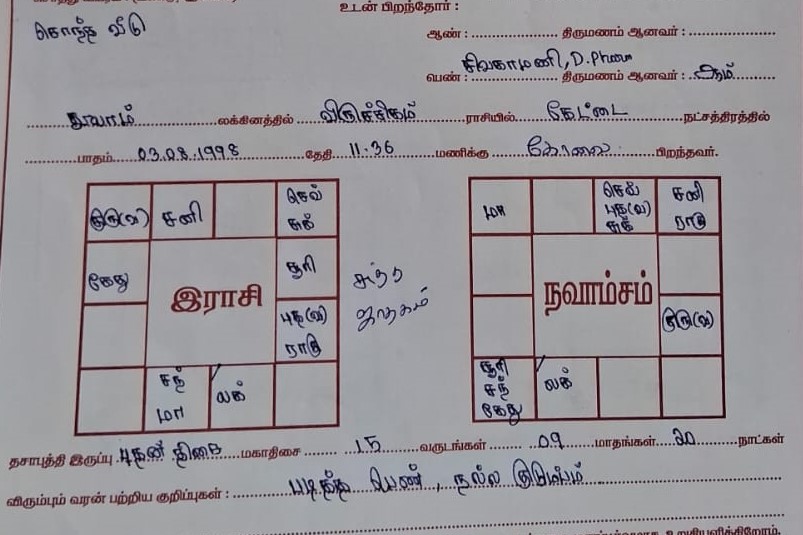 உடன் பிறந்தோர் :
சொந்த வீடு
ஆண் : திருமணம் ஆனவர் :
பெண் : சிவகாமணி, D.Pharm திருமணம் ஆனவர் : ஆம்
துலாம் லக்கினத்தில் விருச்சிகம் ராசியில் கேட்டை நட்சத்திரத்தில்
பாதம் 03.08.1998 தேதி 11.36 மணிக்கு காலை பிறந்தவர்.
குரு(வ) சனி செவ் சுக்
கேது சூரி
இராசி
புத(வ) ராகு
சந் மா லக்
சுத்த ஜாதகம்
மா செவ் புத(வ) சுக் சனி ராகு
நவாம்சம்
குரு(வ)
சூரி சந் கேது லக்
தசாபுத்தி இருப்பு புதன் திசை மகாதிசை 15 வருடங்கள் 09 மாதங்கள் 20 நாட்கள்
விரும்பும் வரன் பற்றிய குறிப்புகள் : படித்த பெண், நல்ல குடும்பம்